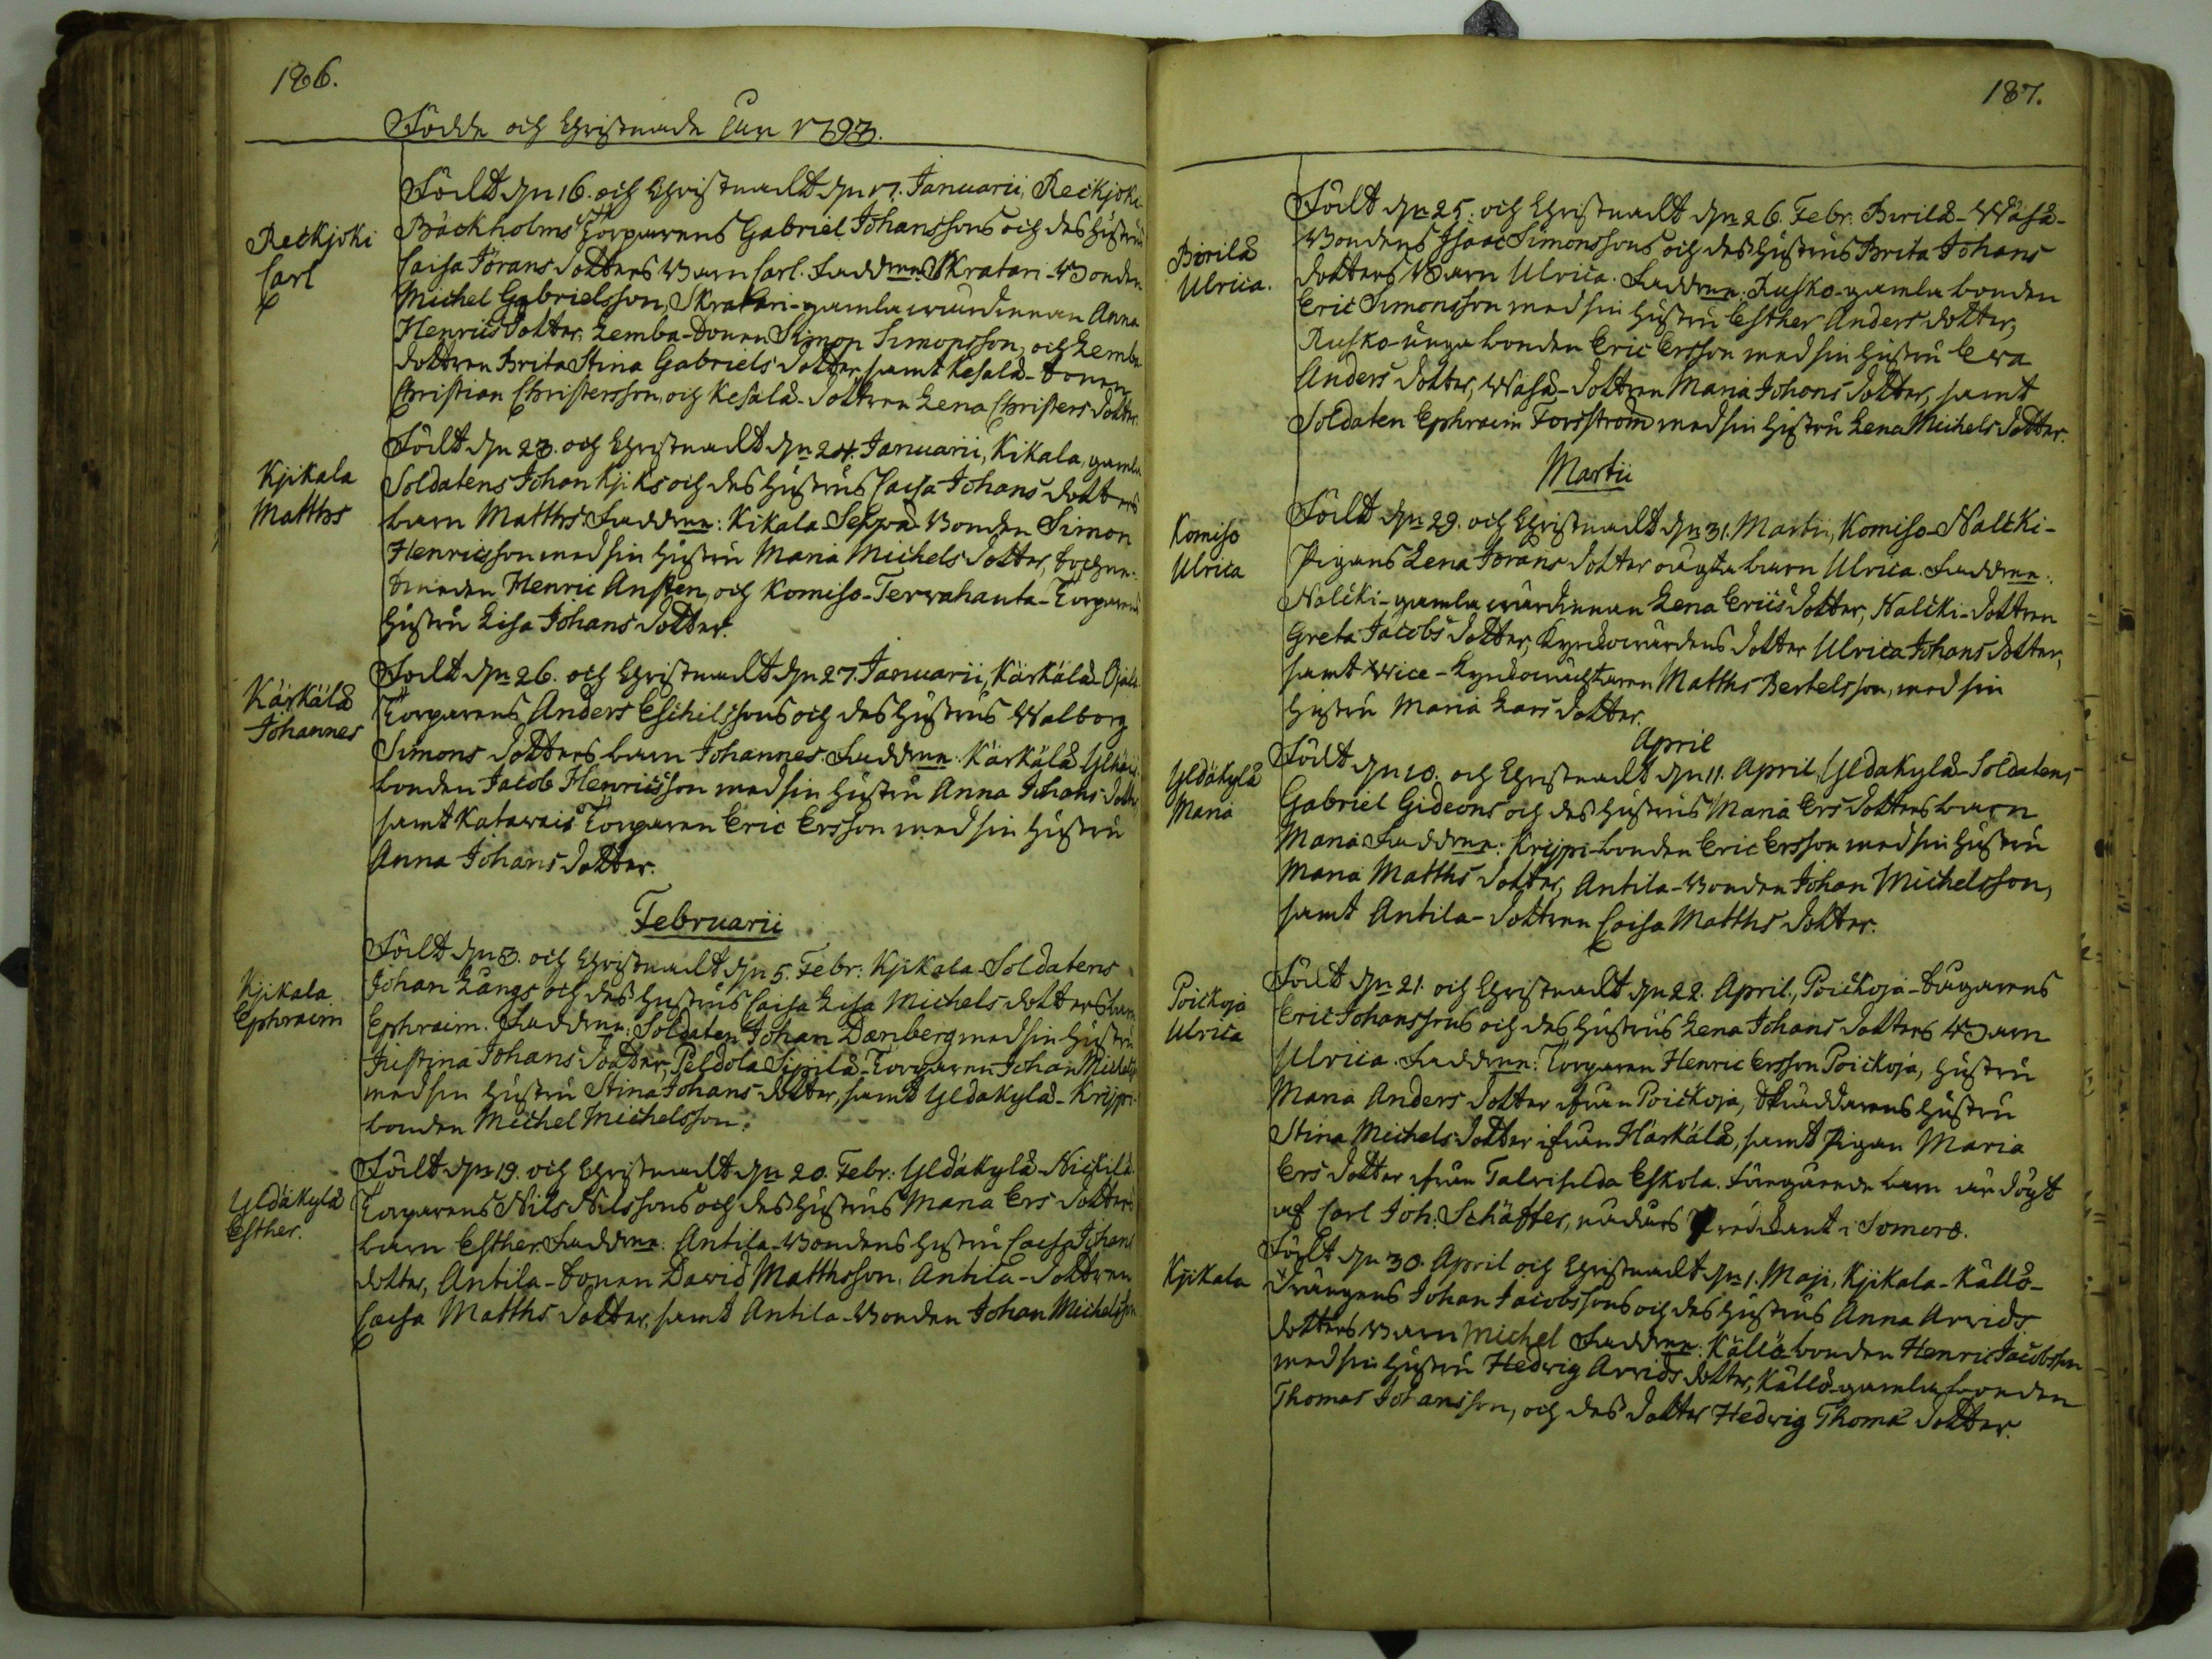 186.
Födde och Christnade Åhr 1793.
Reckjoki
Carl
Född dn 16. och Christnadt dn 17. Januarii, Reckjoki
Bäckholms Torparens Gabriel Johanssons och des hustrus
Caisa Jörans dotters Barn Carl. Faddrar: Skratari-Bonden
Michel Gabrielsson, Skratari-gamla wärdinnan Anna
Henrics dotter, Lemba-Sonen Simon Simonsson, och Lemba
dottren Brita Stina Gabriels dotter, samt Kesälä-Sonen
Christian Christersson, och Kesälä-dottren Lena Christers dotter.
Kjikala
Matths
Född dn 23. och Christnadt dn 24. Januarii, Kikala, gamla
Soldatens Johan Kjiks och des hustrus Caisa Johans dotters
barn Matths. Faddrar: Kikala Seppä-Bonden Simon
Henricsson med sin hustru Maria Michels dotter, Sockne-
Henric Ansten, och Komiso-Terwahauta-Torparens
hustru Lisa Johans dotter.
Kärkälä
Johannes
Född dn 26. och Christnadt dn 27. Januarii, Kärkälä Ojala
Torparens Anders Eschilssons och des hustrus Walborg
Simons dotters barn Johannes. Faddrar: Kärkälä
bonden Jacob Henricsson med sin hustru Anna Johans dotter
samt Katawais Torparen Eric Ersson med sin hustru
Anna Johans dotter.
Februarii
Kjikala
Ephraim
Född dn 3. och Christnadt dn 5. Febr: Kjikala-Soldatens
Johan Längs och des hustrus Caisa Lisa Michels dotters barn
Ephraim. Faddrar: Soldaten Johan Danberg med sin hustru
Justina Johans dotter, Peldola Sipilä-Torparen Johan Michelss:
med sin hustru Stina Johans dotter, samt Yldäkylä-Krijpi-
bonden Michel Michelsson.
Yldäkylä
Esther.
Född dn 19. och Christnadt dn 20. Febr: Yldäkylä-Nickilä
Torparens Nils Nilssons och des hustrus Maria Ers dotters
barn Esther. Faddrar: Antila-Bondens hustru Caisa Johans
dotter, Antila-Sonen David Matthsson, Antila-dottren
Caisa Matths dotter, samt Antila-Bonden Johan Michelsson
187.
Pirilä
Ulrica.
Född dn 25. och Christnadt dn 26. Febr. Pirilä-Wäsä-
Bondens Isaac Simonssons och des hustrus Brita Johans
dotters Barn Ulrica. Faddrar: Rusko-gamla bonden
Eric Simonsson med sin hustru Esther Anders dotter,
Rusko-unga bonden Eric Ersson med sin hustru Ewa
Anders dotter, Wäsä-dottren Maria Johans dotter, samt
Soldaten Ephraim Forsström med sin hustru Lena Michels dotter.
Martii
Komiso
Ulrica
Född dn 29. och Christnadt dn 31. Martii, Komiso-Nalcki-
Pigans Lena Jörans dotter oägta barn Ulrica. Faddrar:
Nalcki-gamla wärdinnan Lena Erics dotter, Nalcki-dottren
Greta Jacobs dotter, Kyrckowärdens dotter Ulrica Johans dotter,
samt Wice-Kyrckowächtaren Matths Bertelsson, med sin
hustru Maria Lars dotter.
April
Yldäkylä
Maria
Född dn 10. och Christnadt dn 11. April, Yldäkylä-Soldatens
Gabriel Gideons och des hustrus Maria Ers dotters barn
Maria. Faddrar: Krijpi-bonden Eric Ersson med sin hustru
Maria Matths dotter, Antila-Bonden Johan Michelsson,
samt Antila-dottren Caisa Matths dotter.
Poickoja
Ulrica
Född dn 21. och Christnadt dn 22. April, Poickoja-Sägarens
Eric Johanssons och des hustrus Lena Johans dotters Barn
Ulrica. Faddrar: Torparen Henric Ersson Poickoja, hustru
Maria Anders dotter ifrån Poickoja, Skräddarens hustru
Stina Michels dotter ifrån Härkälä, samt Pigan Maria
Ers dotter ifrån Talviselda Eskola. Föregående barn är döpt
af Carl Joh: Schäffer, nådårs Predikant i Somero.
Kjikala
Född dn 30. April och Christnadt dn 1. Maji, Kjikala-Källö-
Drängens Johan Jacobssons och des hustrus Anna Arvids
dotters Barn Michel. Faddrar: Källö-bonden Henric Jacobsson
med sin hustru Hedvig Arvids dotter, Källö-gamla bonden
Thomas Johansson, och des dotter Hedvig Thomæ dotter.